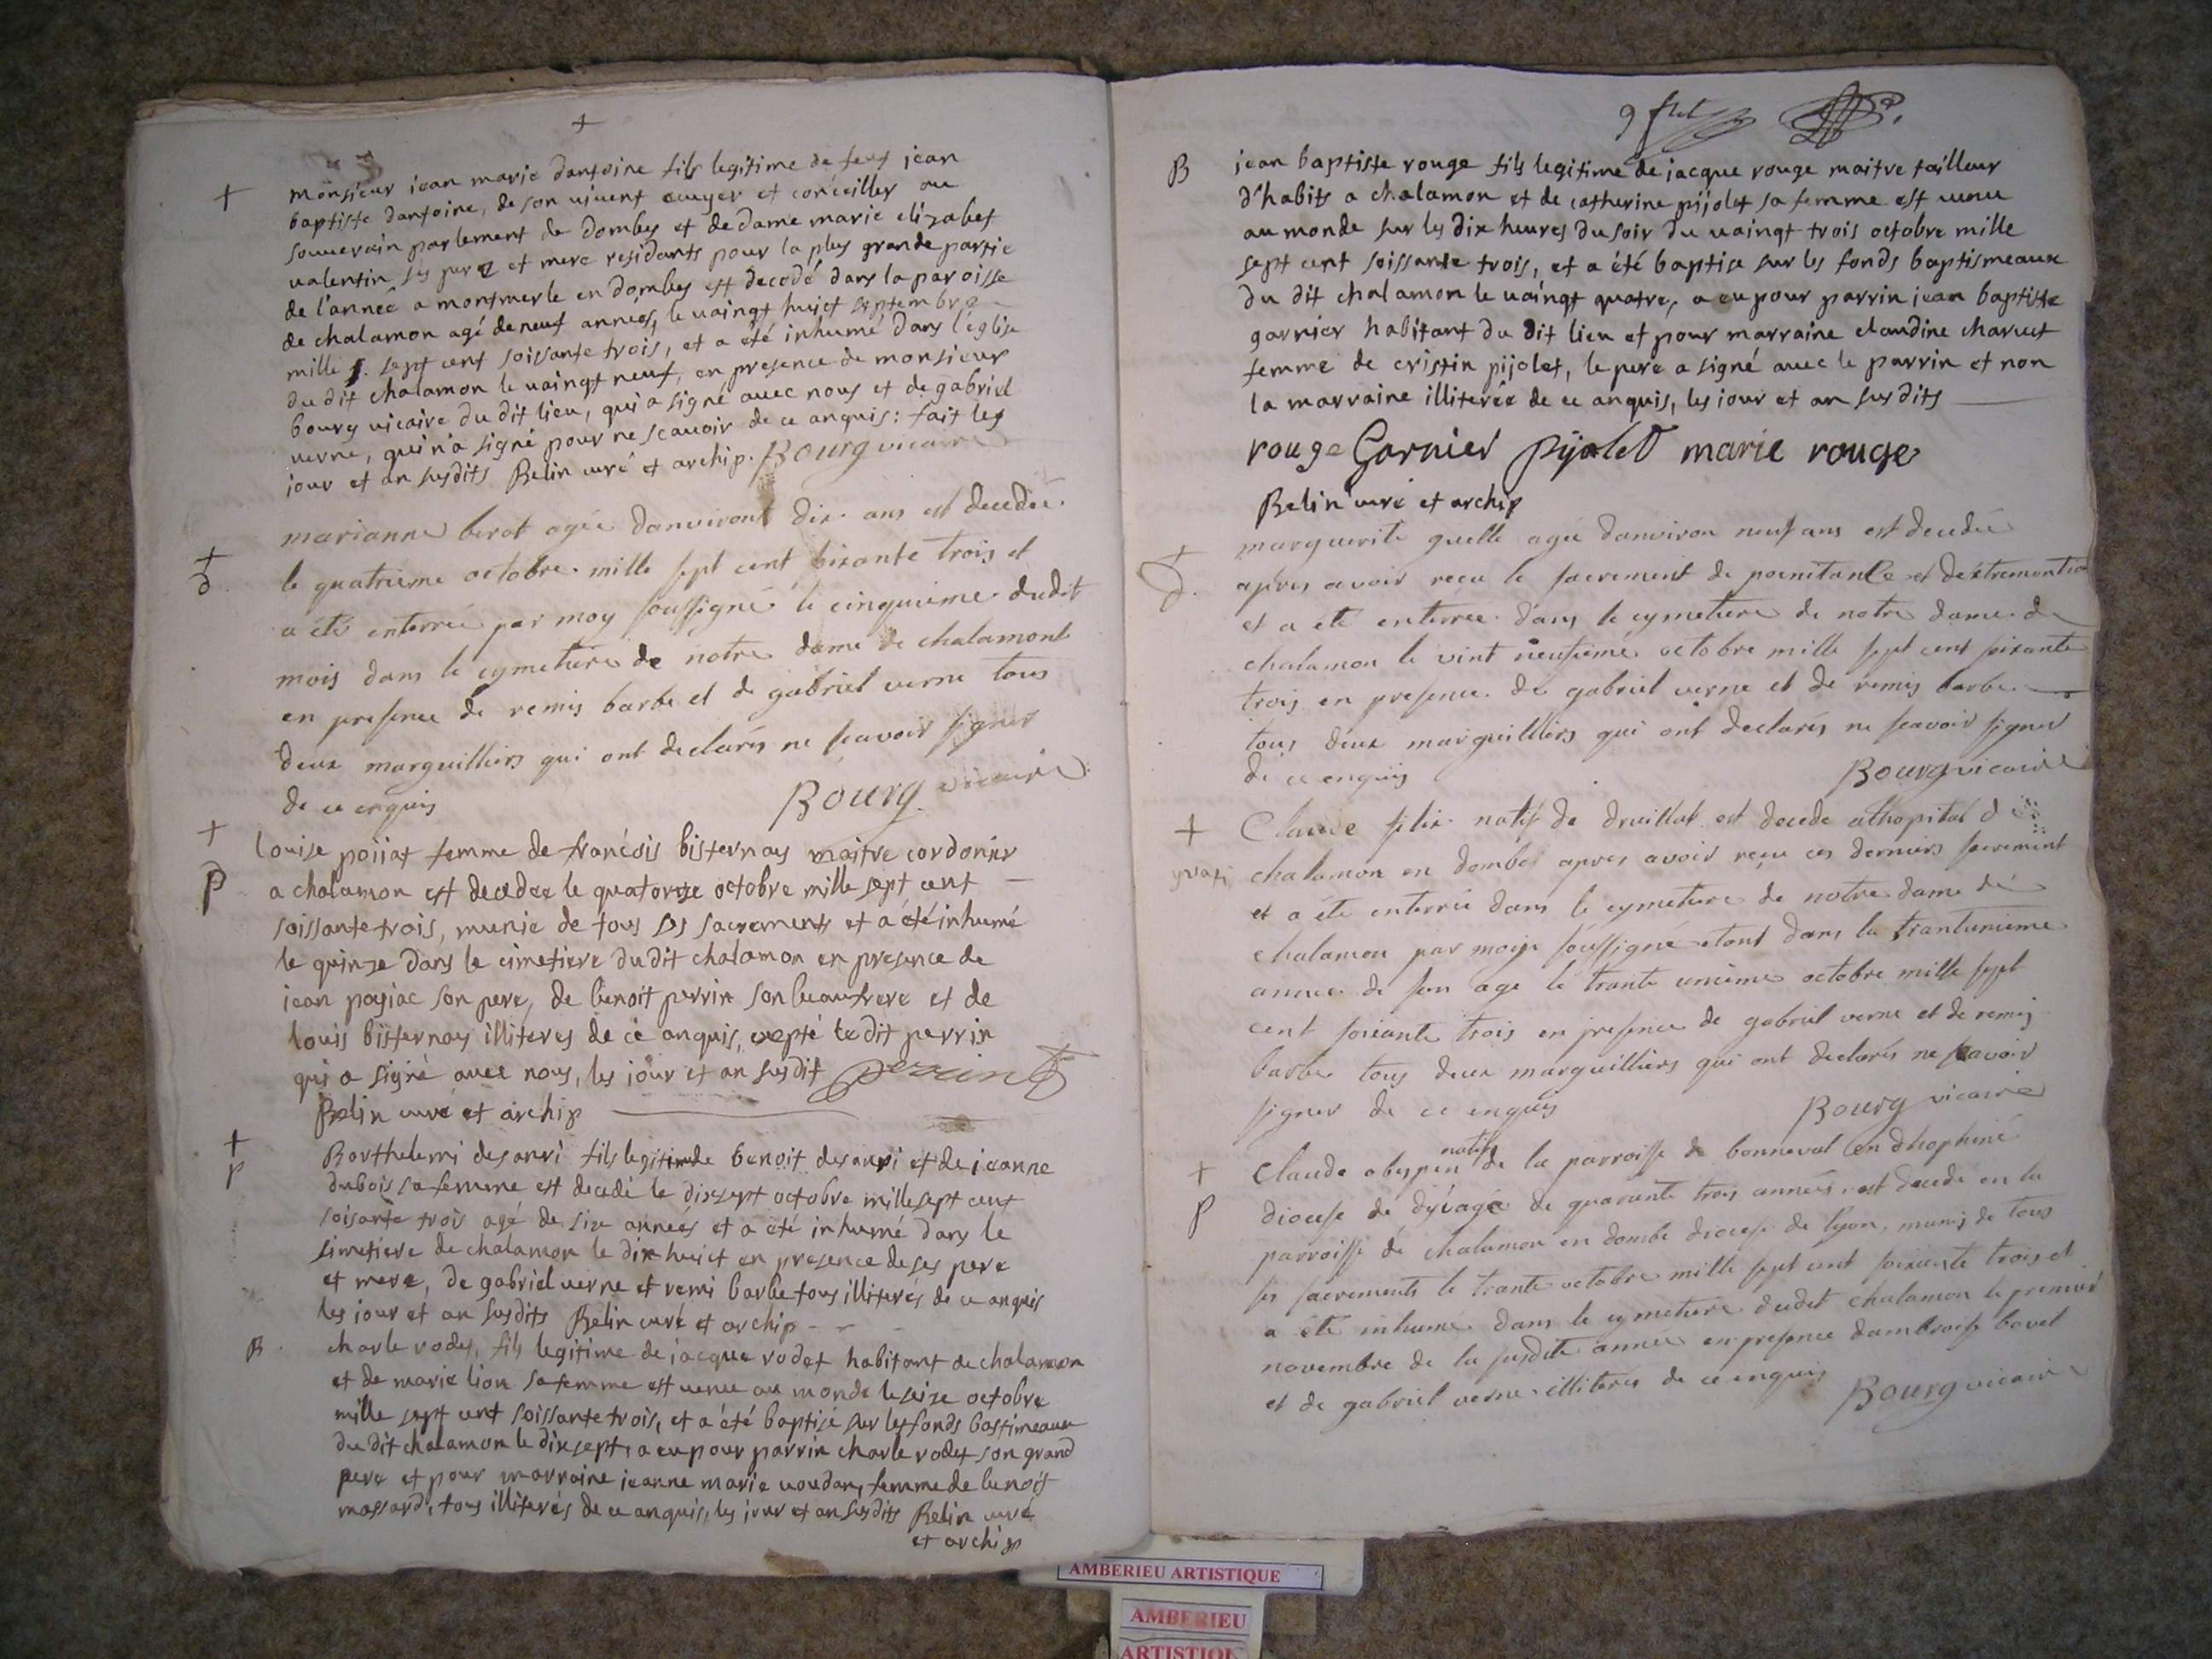 +
+ monsieur jean marie dantoine fils legitime de feut jean
baptiste dantoine, de son vivent ecuyer et conceiller au
souverain parlement de dombes et de dame marie elizabet
valentin ses perz et mere residants pour la plus grande partie
de l'anneé a montmerle en dombes est decedé dans la paroisse
de chalamon agé de neuf anneés, le vaingt huict septembre
mille sept cent soissante trois, et a été inhumé dans l'eglise
du dit chalamon le vaingt neuf, en presence de monsieur
bourg vicaire du dit lieu, qui a signé avec nous et de gabriel
verne, qui n'a signé pour ne scavoir de ce anquis: fait les
jour et an susdits Belin curé et archip. Bourg vicaire
marianne berot agée danviront dix ans est decedée
+ d le quatrieme octobre mille sept cent soixante trois et
a été enterrée par moy soussigné le cinquieme dudit
mois dans le cymetiere de notre dame de chalamont
en presence de remis barbe et de gabriel verne tous
deux marguilliers qui ont declarés ne sçavoir signer
de ce enquis Bourg vicaire
+ louise poiiat femme de francóis bisternas maitre cordonier
P a chalamon est decedee le quatorze octobre mille sept cent
soissante trois, munie de tous ses sacrements et a été inhumé
le quinze dans le cimetiere du dit chalamon en presence de
jean poyiac son pere, de benoit perrin son beaufrere et de
louis bisternas illiteres de ce anquis, exepté le dit perrin
qui a signé avec nous, les jour et an susdit perrin
Belin curé et archip
+ Barthelemi desanri fils legitimde benoit desanri et de jeanne
P dubois sa femme est decedé le dixsept octobre mille sept cent
soisante trois agé de six anneés et a été inhumé dans le
simetiere de chalamon le dix huict en presence de ses pere
et mere, de gabriel verne et remi barbe tous illiterés de ce anquis
les jour et an susdits Belin curé et archip
B charle rodet, fils legitime de jacque rodet habitant de chalamon
et de marie lion sa femme est venu au monde le seize octobre
mille sept cent soissante trois, et a été baptisé sur les fonds bastimeaux
du dit chalamon le dix sept, a eu pour parrin charle rodet son grand
pere et pour marraine jeanne marie voudan, femme de benoit
massard, tous illiterés de ce anquis, les jour et an susdits Belin curé
et archip
B jean baptiste rouge fils legitime de jacque rouge maitre tailleur
d'habits a chalamon et de catherine pijolet sa femme est venu
au monde sur les dix heures du soir du vaingt trois octobre mille
sept cent soissante trois, et a été baptisé sur les fonds baptismeaux
du dit chalamon le vaingt quatre, a eu pour parrin jean baptiste
garnier habitant du dit lieu et pour marraine claudine charvet
femme de cristin pijolet, le pere a signé avec le parrin et non
la marraine illiterée de ce anquis, les jour et an susdits
rouge Garnier pijolet marie rouge
Belin curé et archip
+ marguerite quelle agée danviron neuf ans est decedée
d. apres avoir reçu le sacrement de poenitance et dextremontion
et a été enterrée dans le cymetiere de notre dame de
chalamon le vint neufieme octobre mille sept cent soixante
trois en presence de gabriel verne et de remis barbe
tous deux marguilliers qui ont declarés ne scavoir signer
de ce enquis Bourg vicaire
+ Claude felix natif de druillat est decede a lhopital d
chalamon en dombes apres avoir reçu ces derniers sacrement
et a été enterrée dans le cymetiere de notre dame de
chalamon par moy soussigné etant dans la trantunieme
année de son age le trante unieme octobre mille sept
cent soixante trois en presence de gabriel verne et de remis
barbe tous deux marguilliers qui ont declarés ne scavoir
signer de ce enquis Bourg vicaire
+ Claude abespin natif de la parroisse de bonneval en dhophiné
P diocese de dye agé de quarante trois années est decedé en la
parroisse de chalamon en dombe diocese de lyon, munis de tous
ses sacrements le trante octobre mille sept cent soixante trois et
a été inhumé dans le cymetiere dudit chalamon le premier
novembre de la susdite année en presence dambroise bovet
et de gabriel verne illiteres de ce enquis Bourg vicaire
AMBERIEU ARTISTIQUE
AMBERIEU